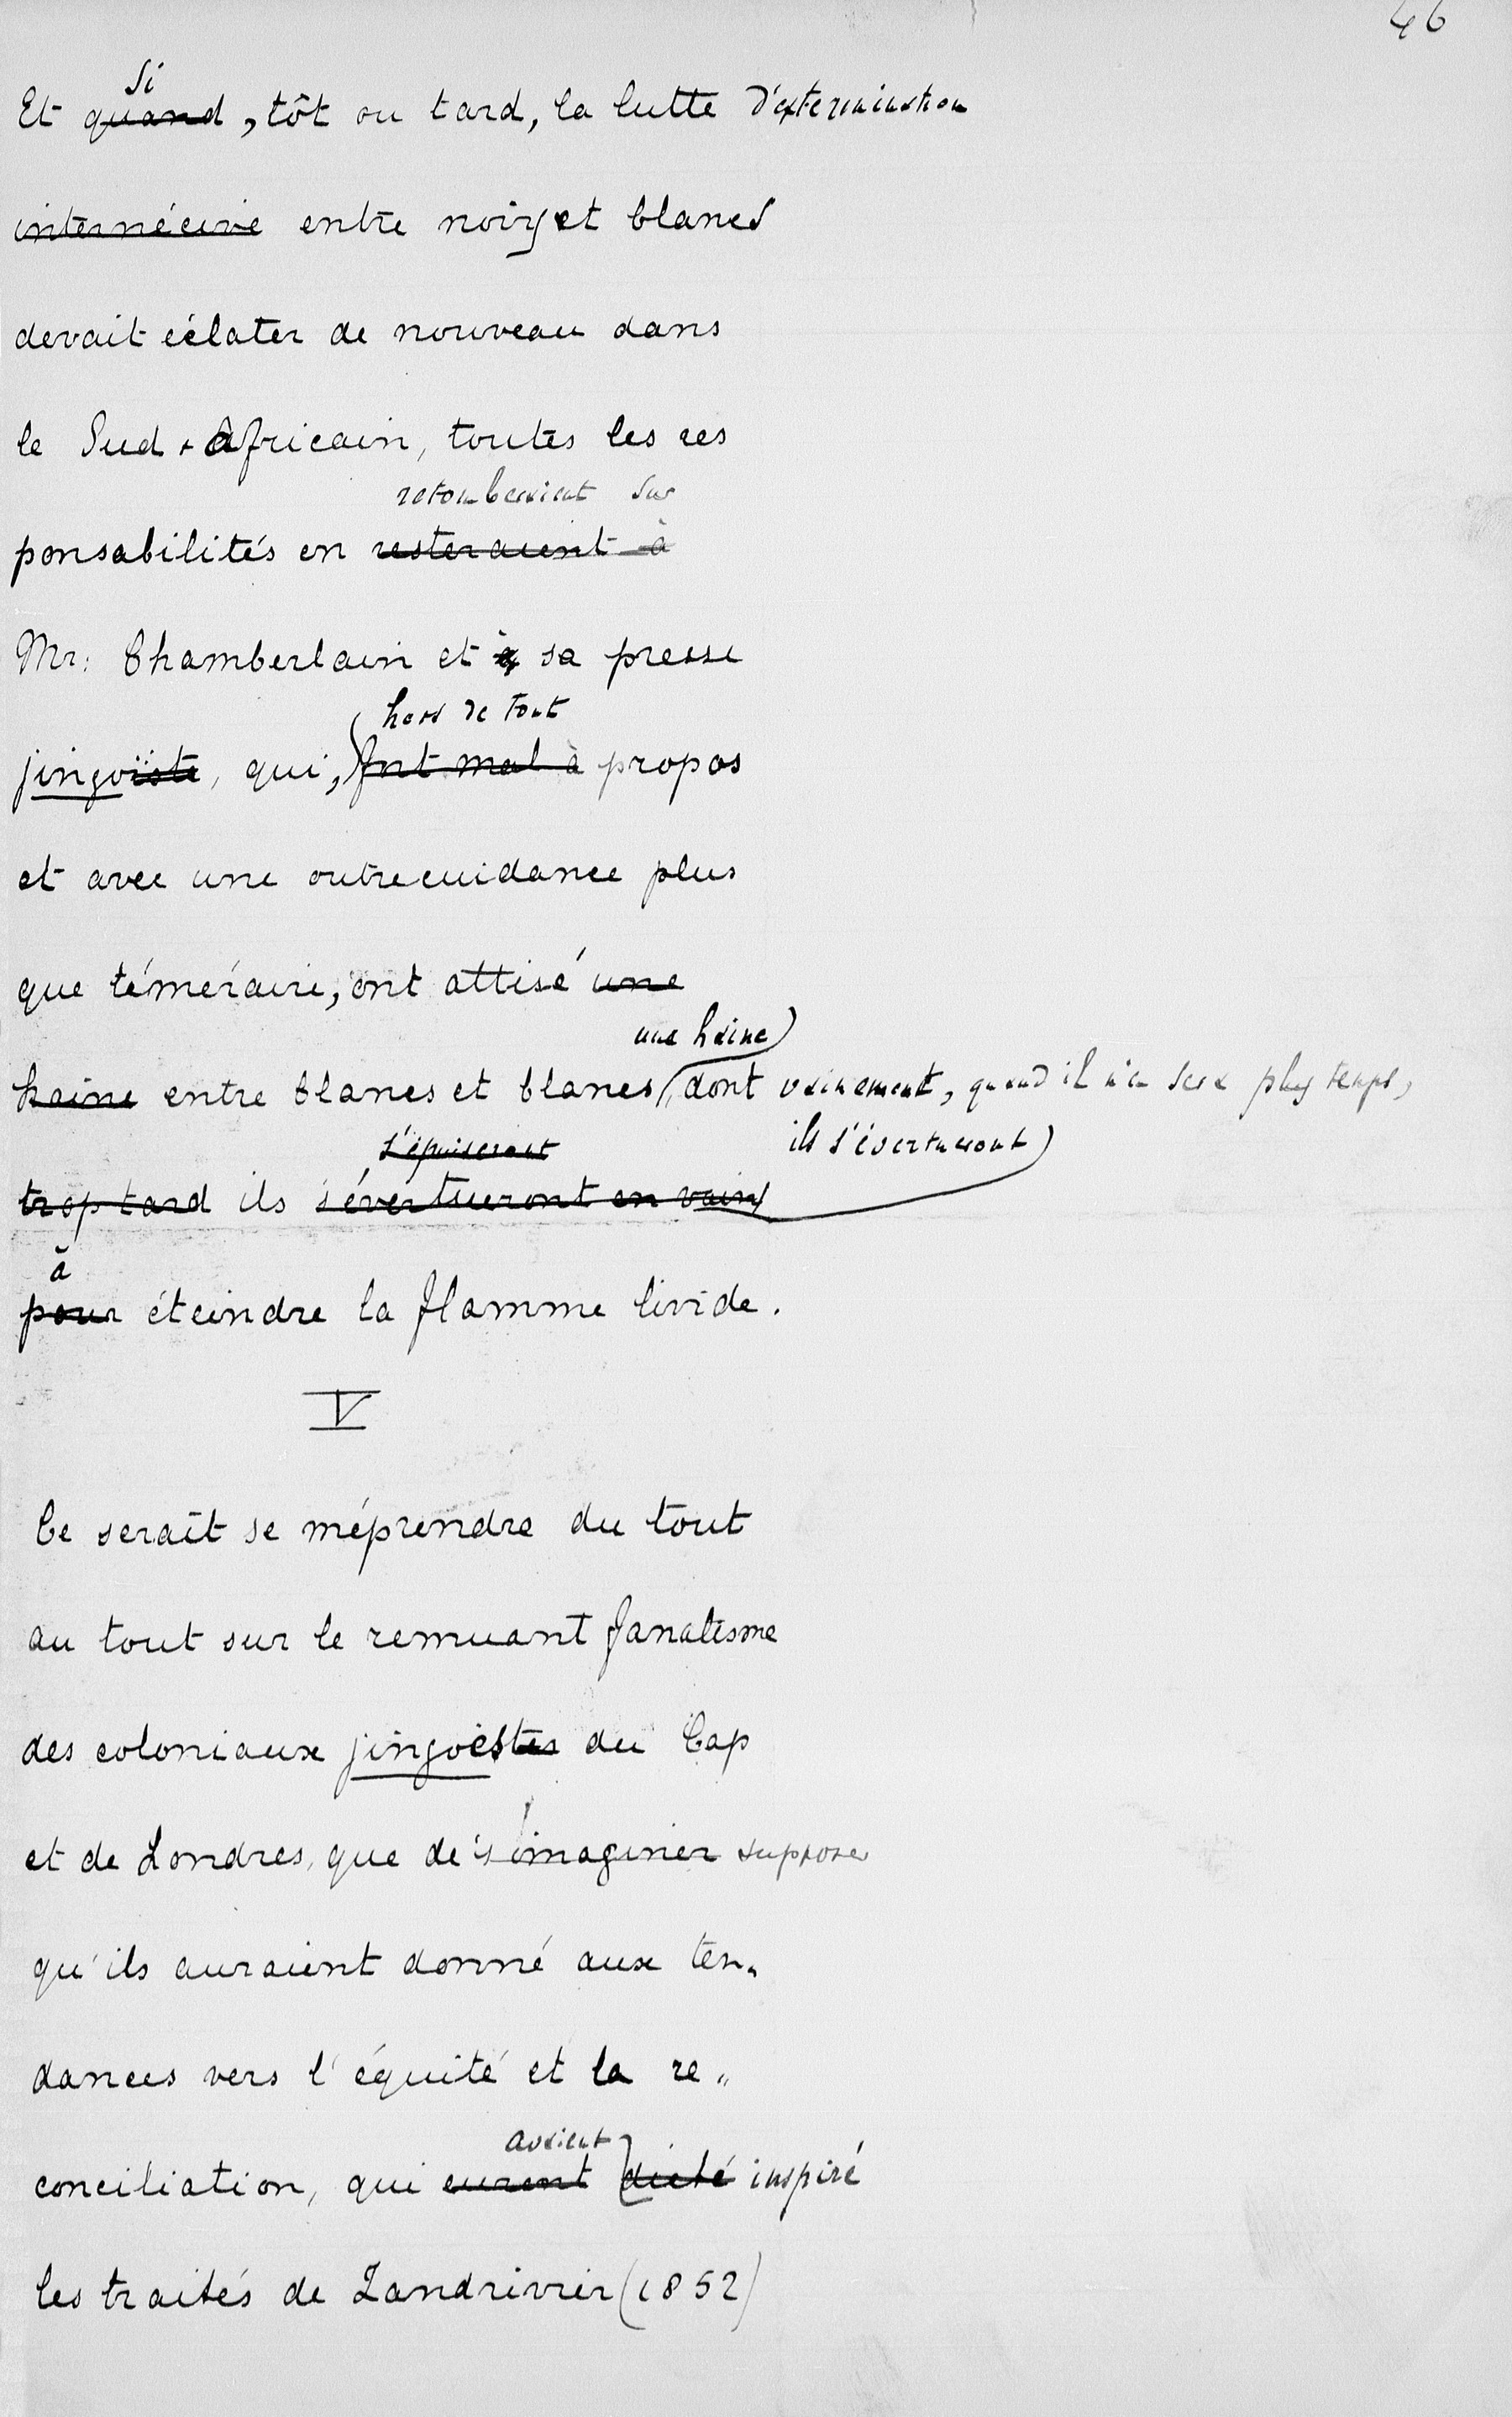 46
Si
Et quand, tôt ou tard, la lutte d'extermination
internécine entre noirs et blancs
devait éclater de nouveau dans
le Sud-Africain, toutes les res
retomberaient sur
ponsabilités en resteraient à
Mr: Chamberlain et à sa presse
hors de tout
jingoïste, qui, fort mal à propos
et avec une outrecuidance plus
que téméraire, ont attisé une
une haine
haine entre blancs et blancs, dont vainement, quand il n'en sera plus temps,
s'épuiseront ils s'évertueront
trop tard ils s'évertueront en vain
à
pour éteindre la flamme livide.
V
Ce serait se méprendre du tout
au tout sur le remuant fanatisme
des coloniaux jingoïstes du Cap
et de Londres, que de s'imaginer supposer
qu'ils auraient donné aux ten„
dances vers l'équité et la re„
avaient
conciliation, qui eurent dicté inspiré
les traités de Zandrivier (1852)